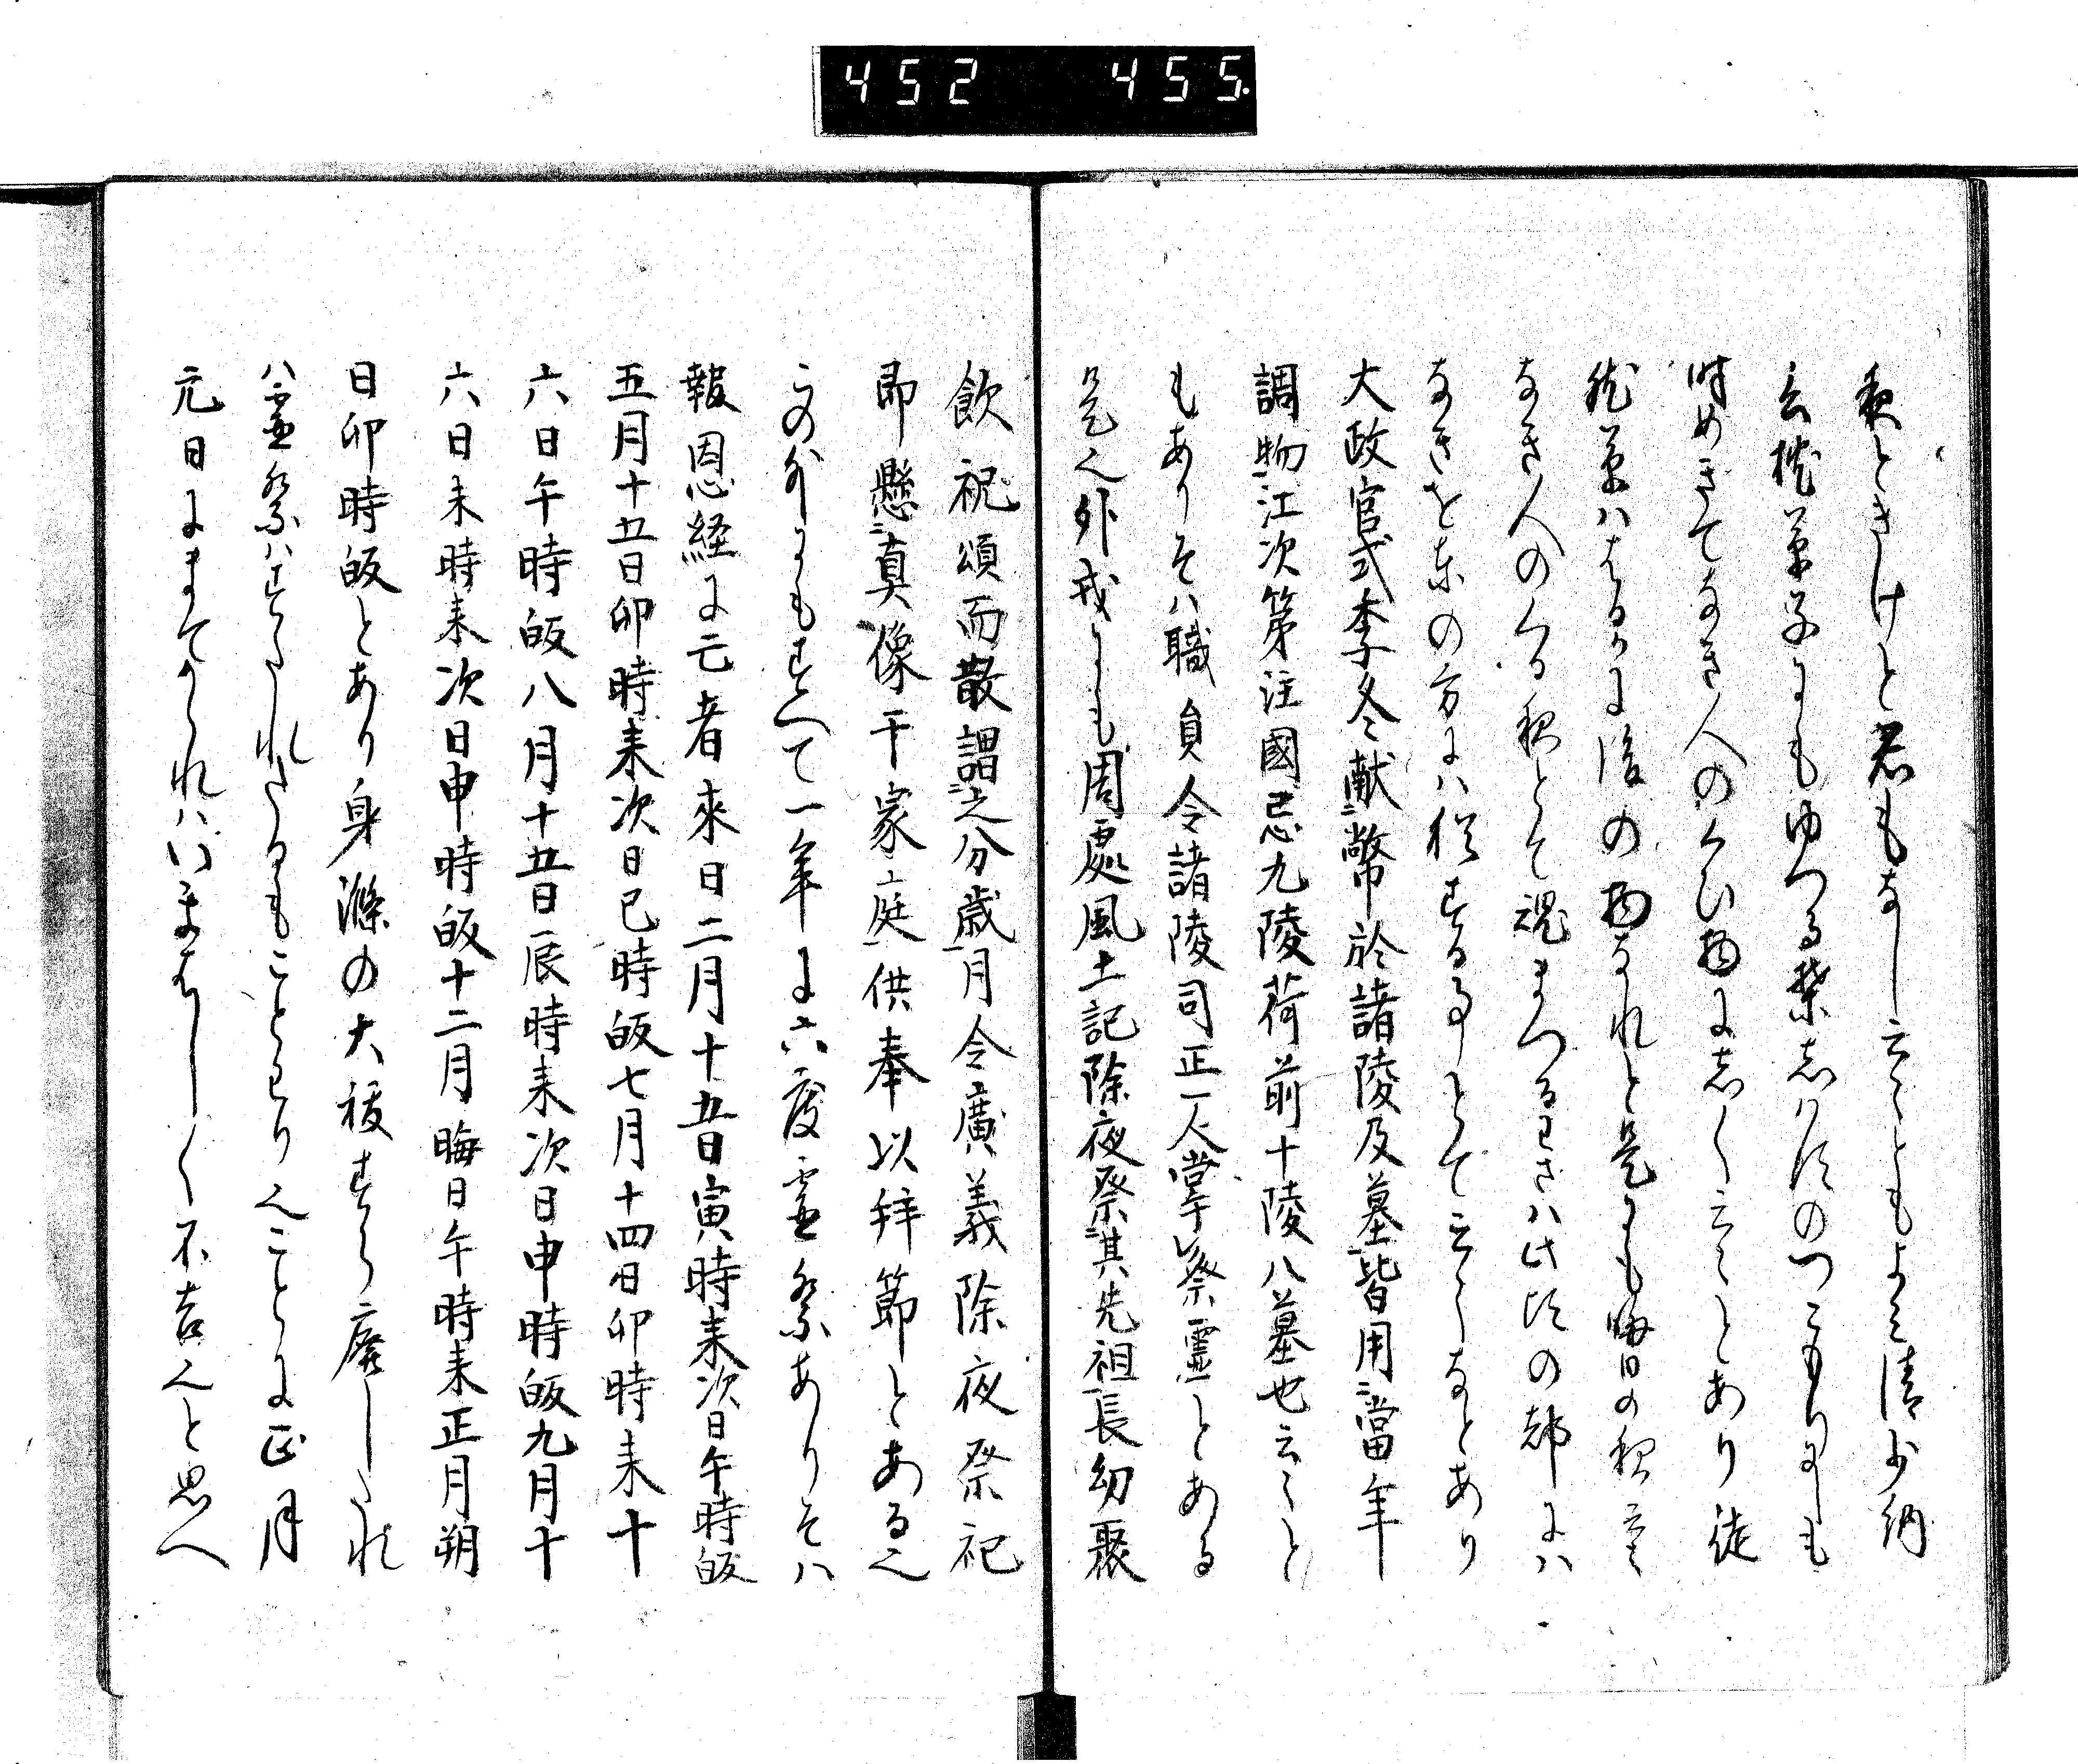 452 455.
夜ときけと君もなし云々ともよみ清少納
言枕草子にもゆつる葉しはすのつこもりにしも
時めきてなき人のくひ物にもしく云々とあり徒
然草ははるかに後の物なれと是にも晦日の夜云々
なき人のくる夜とて魂まつるわさは此比の都には
なきを東の方には猶する事にて云々なとあり
大政官式季冬献幣於諸陵及墓皆用當年
調物江次第注國忌九陵荷前十陵八墓也云々と
もありそは職員令諸陵司正一人掌祭霊とある
是也外戎にも周處風土記除夜祭其先祖長幼聚
飲祝頌而散謂之分歳月令廣義除夜祭祀
即懸真像于家庭供奉以拜節とある也
この外にもすへて一年に六度霊祭ありそは
報恩経に云者來日二月十五日寅時来次日午時皈
五月十五日卯時来次日巳時皈七月十四日卯時来十
六日午時皈八月十五日辰時来次日申時皈九月十
六日未時来次日申時皈十二月晦日午時来正月朔
日卯時皈とあり身滌の大祓すら廃したれ
ハ霊祭はすたれたるもことわり也ことに正月
元日にまてかゝれはいまはしく不吉也と思へ